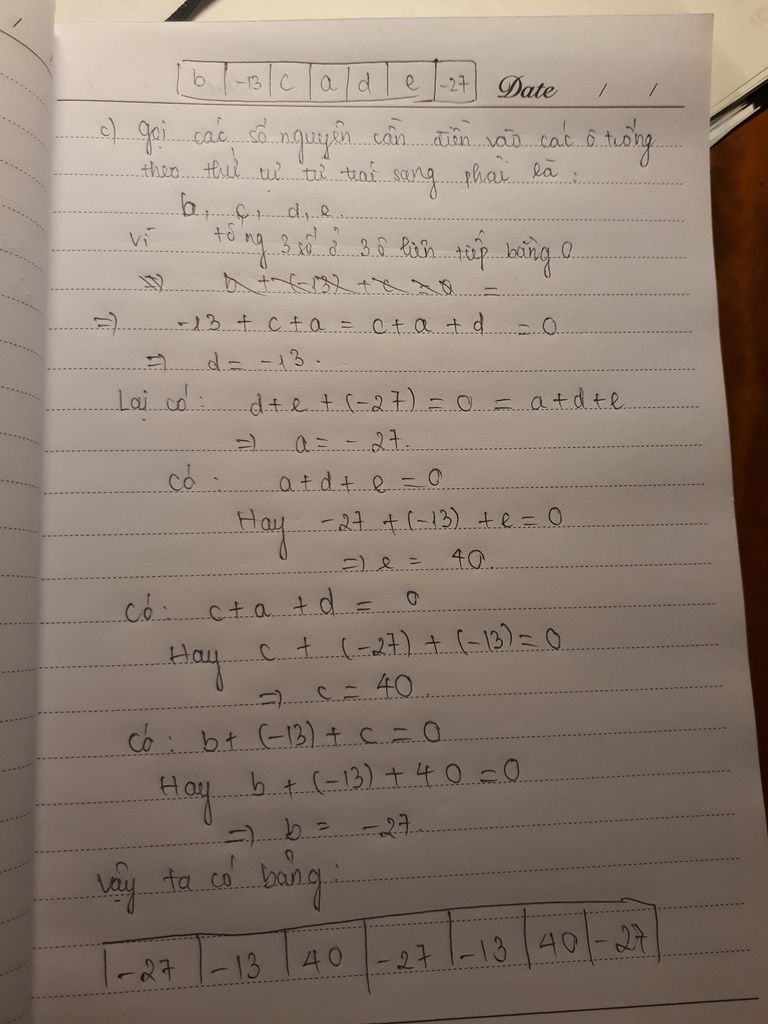 b | -13 | c | a | d | e | -27
Date / /
c) Gọi các số nguyên cần điền vào các ô trống
theo thứ tự từ trái sang phải là:
b, c, d, e.
Vì tổng 3 số ở 3 ô liên tiếp bằng 0
=> b + (-13) + c = 0 =
=> -13 + c + a = c + a + d = 0
=> d = -13.
Lại có: d + e + (-27) = 0 = a + d + e
=> a = -27.
Có: a + d + e = 0
Hay -27 + (-13) + e = 0
=> e = 40.
Có: c + a + d = 0
Hay c + (-27) + (-13) = 0
=> c = 40.
Có: b + (-13) + c = 0
Hay b + (-13) + 40 = 0
=> b = -27.
Vậy ta có bảng:
-27 | -13 | 40 | -27 | -13 | 40 | -27